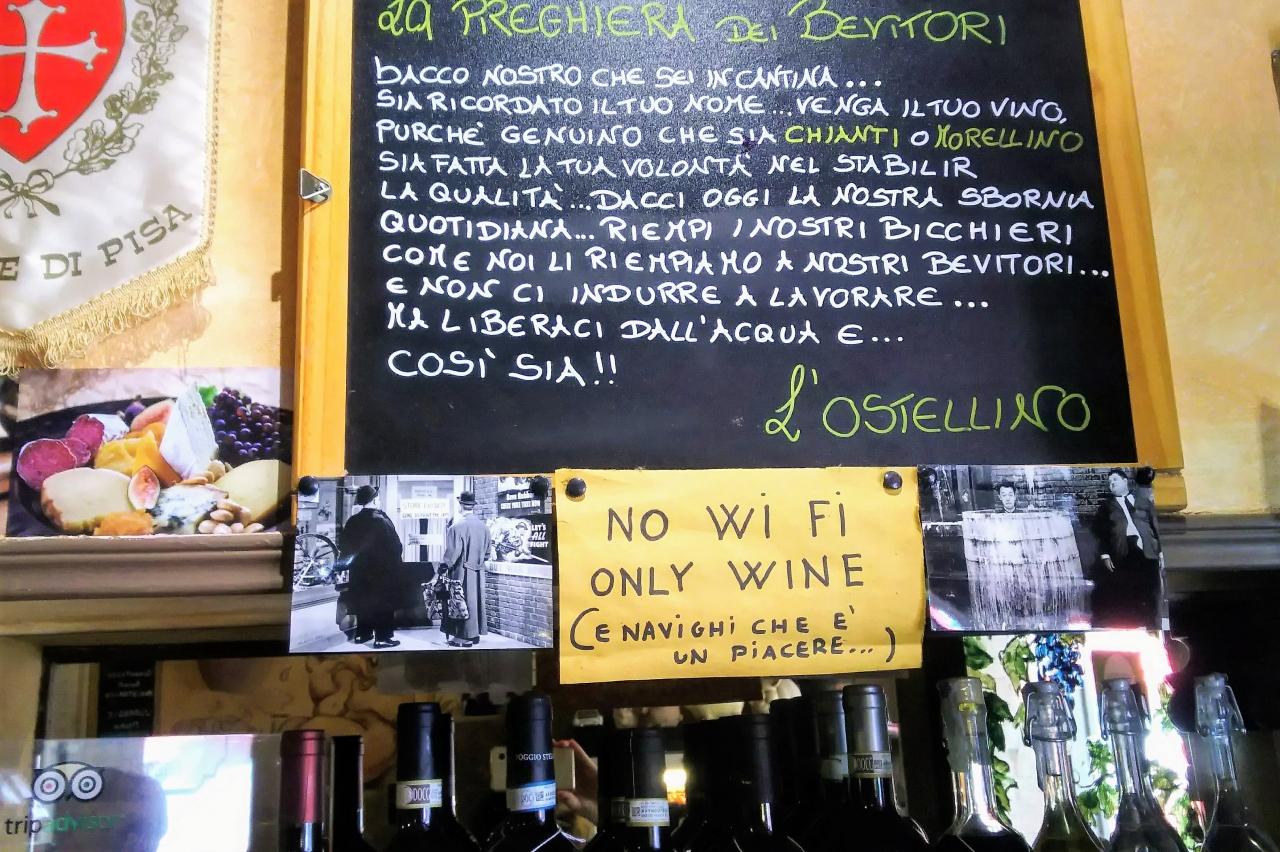 LA PREGHIERA DEI BEVITORI
BACCO NOSTRO CHE SEI IN CANTINA...
SIA RICORDATO IL TUO NOME...VENGA IL TUO VINO,
PURCHÈ GENUINO CHE SIA CHIANTI O MORELLINO
SIA FATTA LA TUA VOLONTÀ NEL STABILIR
LA QUALITÀ...DACCI OGGI LA NOSTRA SBORNIA
QUOTIDIANA...RIEMPI I NOSTRI BICCHIERI
COME NOI LI RIEMPIAMO A NOSTRI BEVITORI...
E NON CI INDURRE A LAVORARE...
MA LIBERACI DALL'ACQUA E...
COSÌ SIA!!
L'OSTELLINO
E DI PISA
NO WI FI
ONLY WINE
(E NAVIGHI CHE È
UN PIACERE...)
LET'S
ALL
tripadvisor